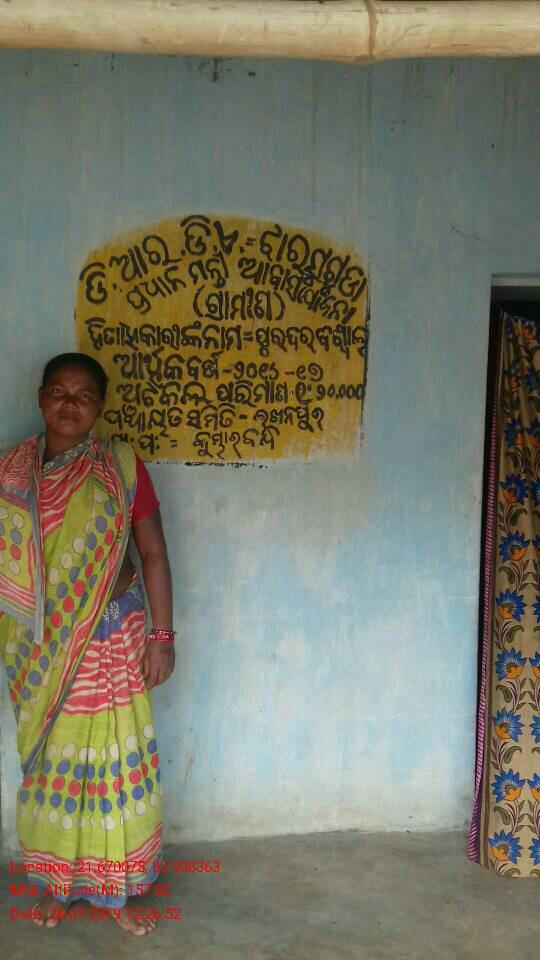 ଡି.ଆର.ଡି.ଏ.= ଝାରସୁଗୁଡା
ପ୍ରଧାନ ମନ୍ତ୍ରୀ ଆବାସ ଯୋଜନା
(ଗ୍ରାମୀଣ)
ହିତାଧିକାରୀଙ୍କ ନାମ = ପୁରନ୍ଦର ବଖ୍ଲା
ଆର୍ଥିକ ବର୍ଷ -୨୦୧୬ -୧୭
ଅଟକଳ ପରିମାଣ ୧,୨୦,୦୦୦
ପଞ୍ଚାୟତ ସମିତି - ଲଖନପୁର
ଗ୍ରା: ପଂ: = କୁମ୍ଭାରବନ୍ଧ
Location: 21.670075, 83.908363
MSL Altitude(M): 157.82
Date: 26-07-2019 12:26:52